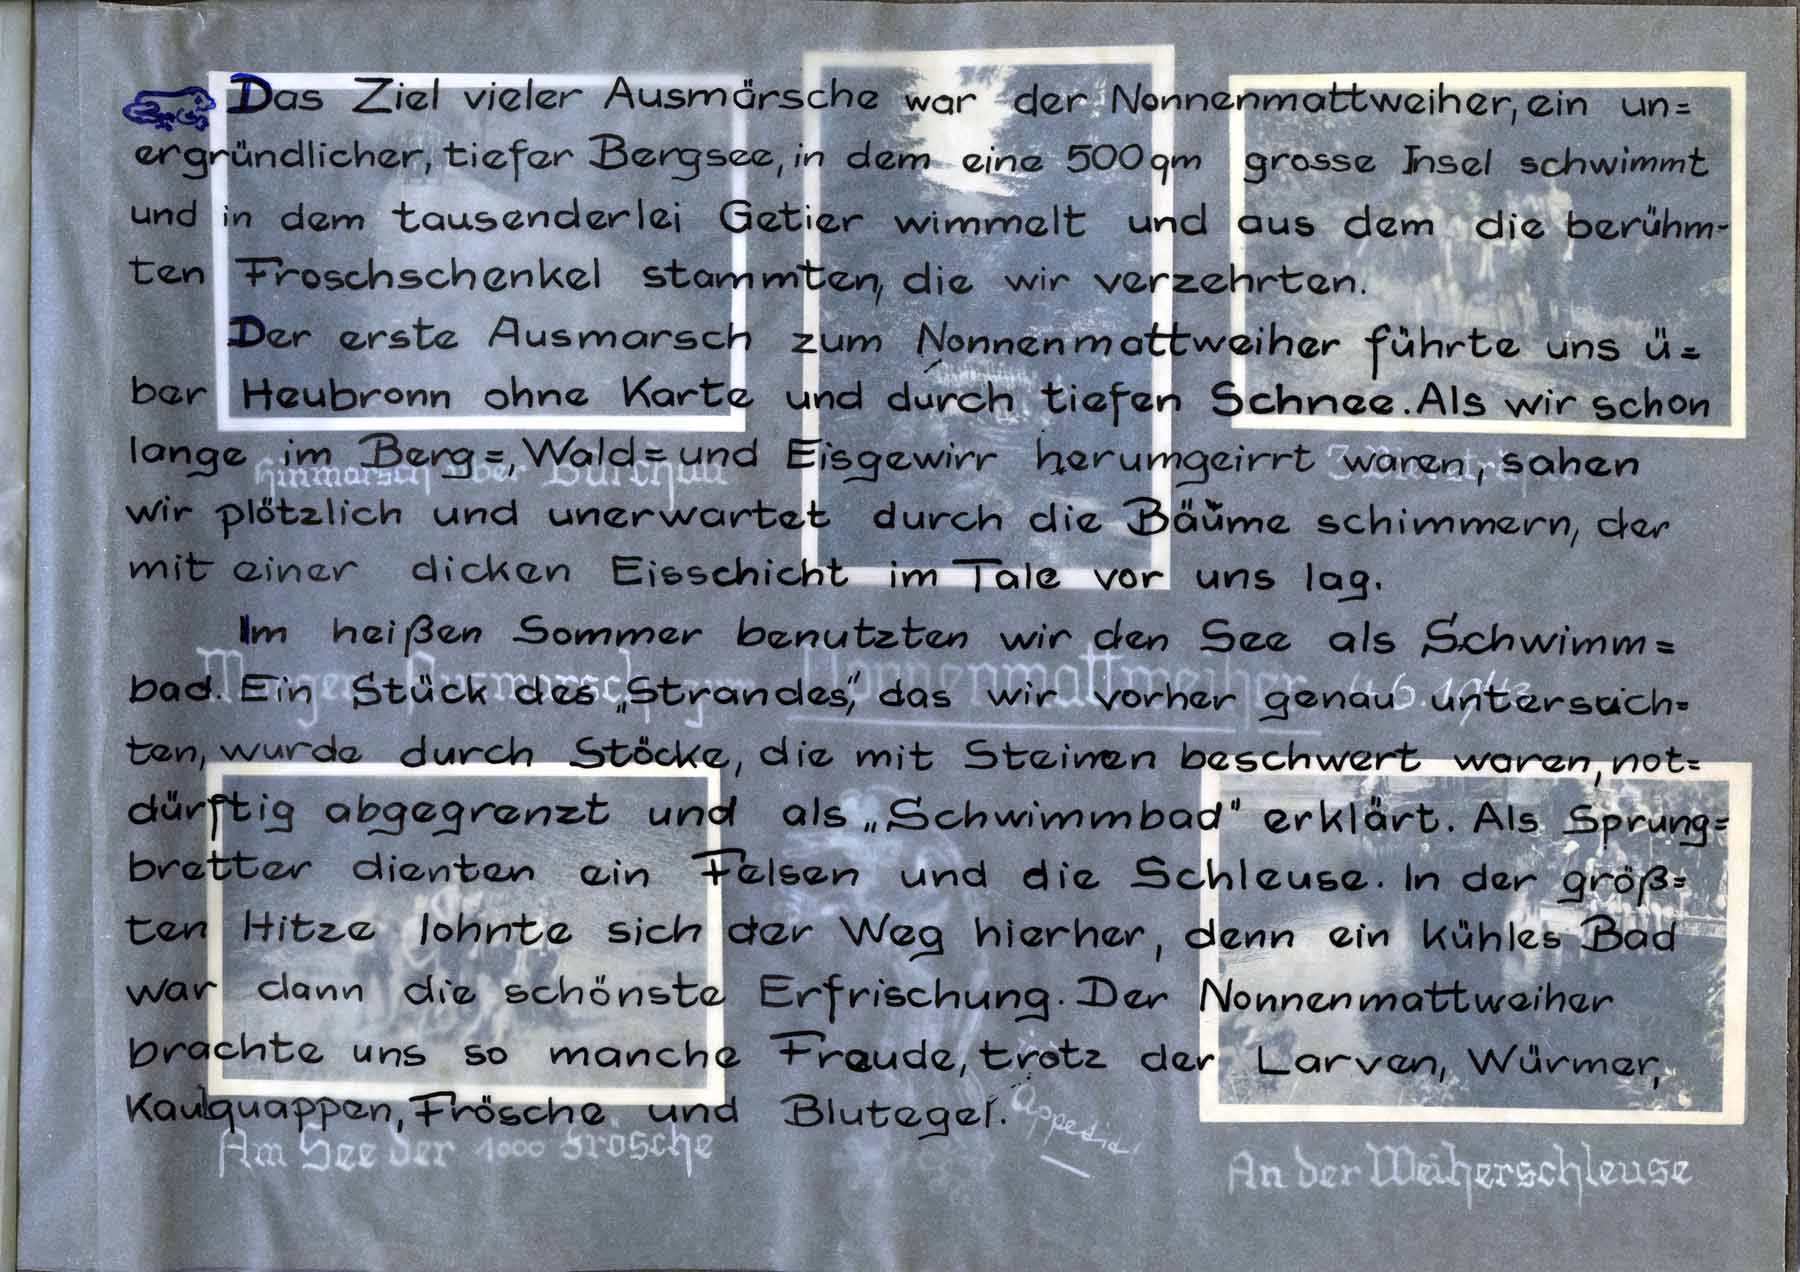 Das Ziel vieler Ausmärsche war der Nonnenmattweiher, ein un=
ergründlicher, tiefer Bergsee, in dem eine 500 qm grosse Insel schwimmt
und in dem tausenderlei Getier wimmelt und aus dem die berühm-
ten Froschschenkel stammten, die wir verzehrten.
Der erste Ausmarsch zum Nonnenmattweiher führte uns ü=
ber Heubronn ohne Karte und durch tiefen Schnee. Als wir schon
lange im Berg=, Wald= und Eisgewirr herumgeirrt waren, sahen
wir plötzlich und unerwartet durch die Bäume schimmern, der
mit einer dicken Eisschicht im Tale vor uns lag.
Im heißen Sommer benutzten wir den See als Schwimm=
bad. Ein Stück des „Strandes", das wir vorher genau untersuch=
ten, wurde durch Stöcke, die mit Steinen beschwert waren, not=
dürftig abgegrenzt und als „Schwimmbad" erklärt. Als Sprung=
bretter dienten ein Felsen und die Schleuse. In der größ=
ten Hitze lohnte sich der Weg hierher, denn ein kühles Bad
war dann die schönste Erfrischung. Der Nonnenmattweiher
brachte uns so manche Freude, trotz der Larven, Würmer,
Kaulquappen, Frösche und Blutegel.
Hinmarsch über Bürchau
Ausmarsch zum Nonnenmattweiher
Am See der 1000 Frösche
An der Weiherschleuse